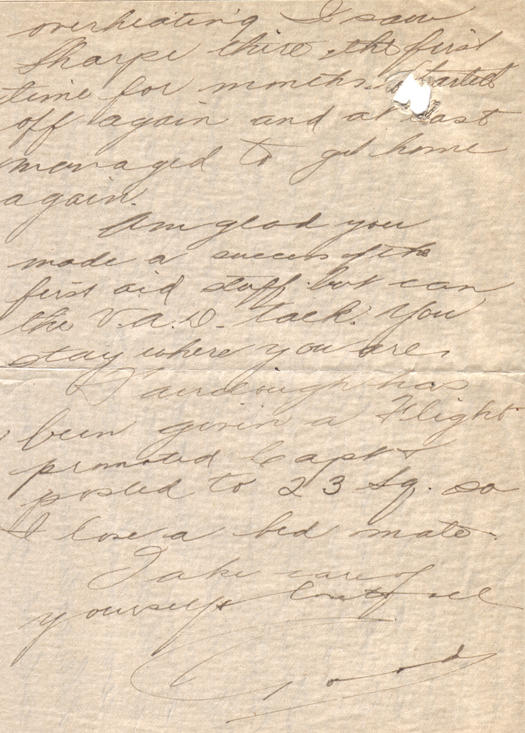 overheating I saw
Sharpe there, the first
time for months. Started
off again and at last
managed to get home
again.
Am glad you
made a success of the
first aid stuff but can
the V.A.D. talk. You
stay where you are.
has
been given a Flight
promoted Capt &
posted to 23 Sq. so
I lose a bed mate.
Take care of
yourself